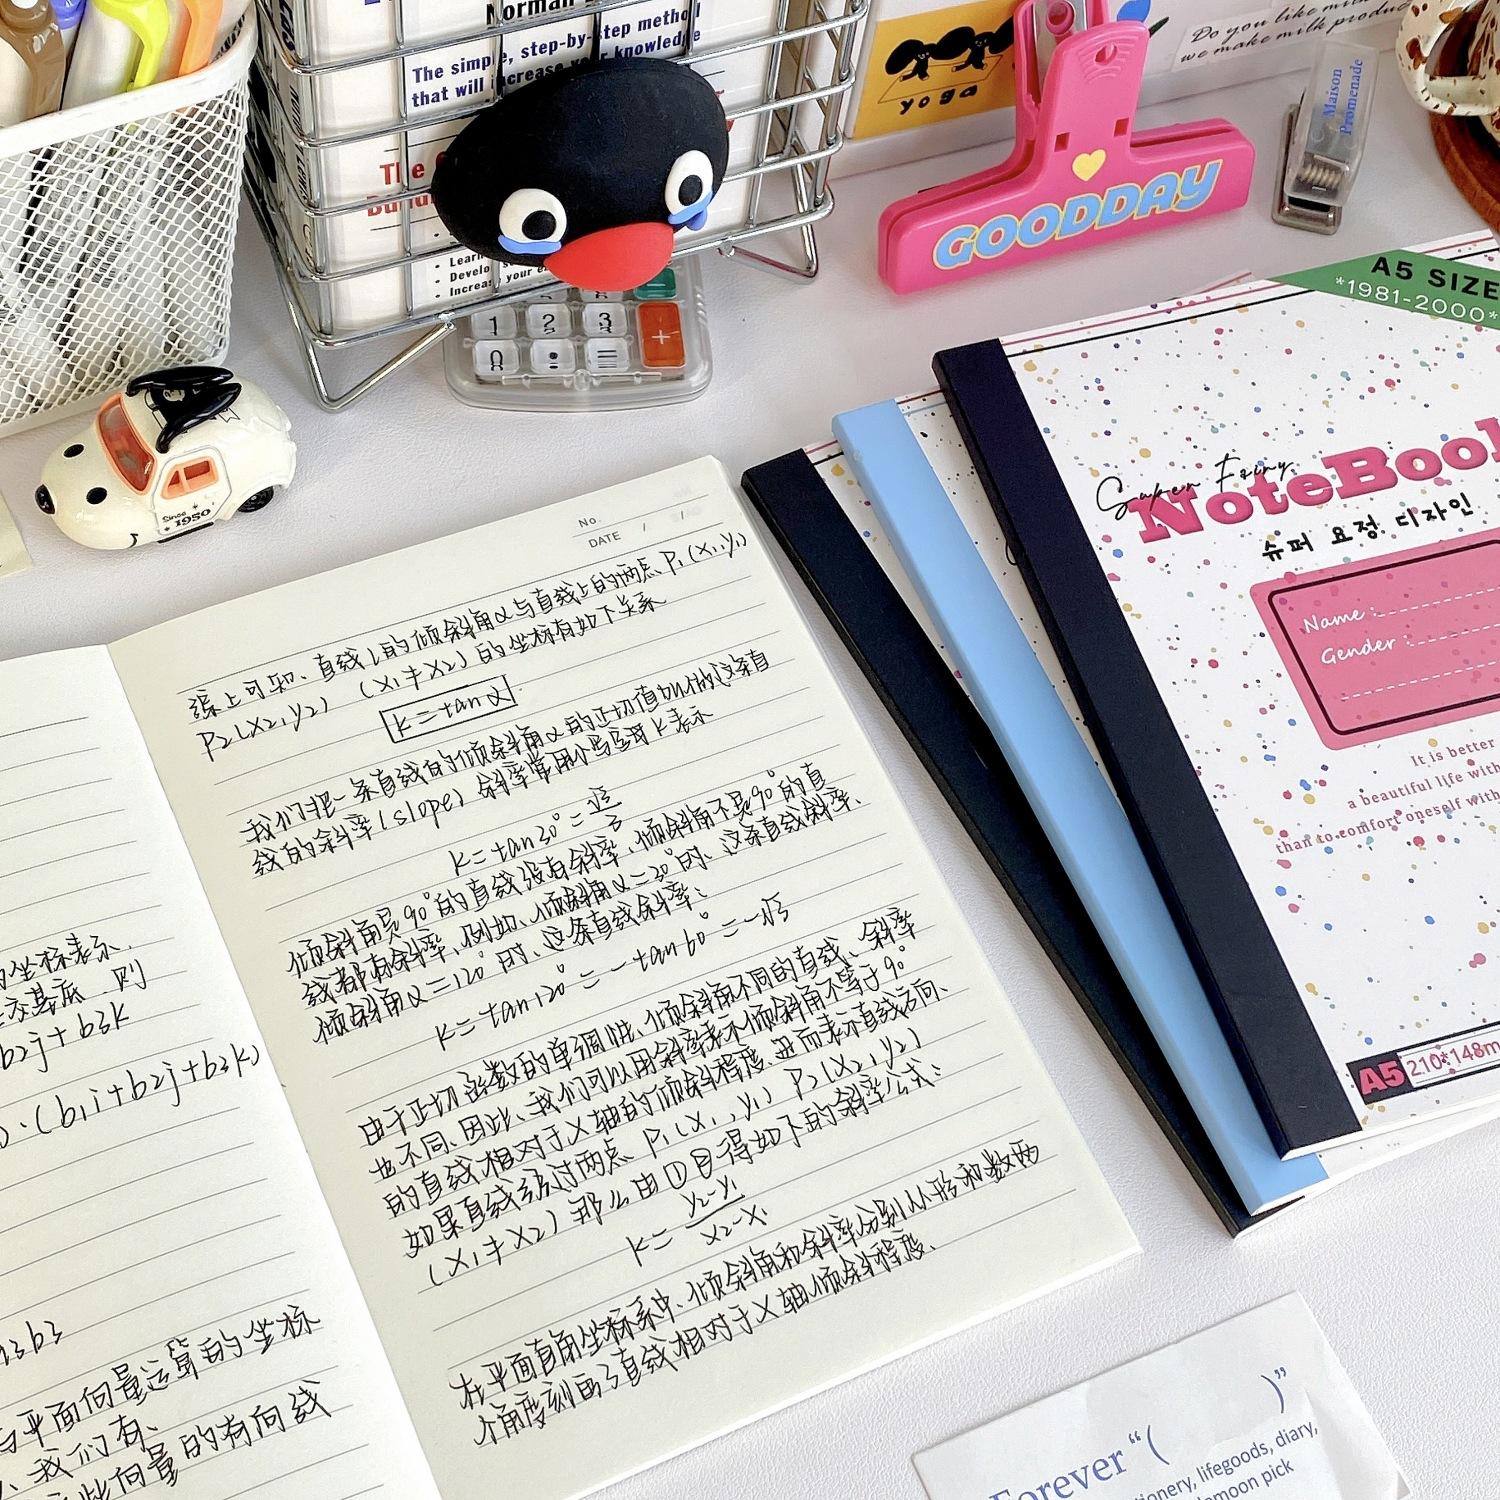 Norman
The simple, step-by-step method
that will increase your knowledge
The
• Learn
• Develo
• Increase your
1 2 3 +
0 • =
yoga
Do you like milk
we make milk produc
GOODDAY
Maison
Promenade
Since
1950
A5 SIZE
*1981-2000*
Super Fairy
NoteBook
슈퍼 요정 디자인
Name :
Gender :
It is better
a beautiful life with
than to comfort oneself with
A5 210*148m
No.
DATE / /
综上可知、直线l的倾斜角α与直线上的两点P₁(x₁,y₁)
P₂(x₂,y₂) (x₁≠x₂)的坐标有如下关系
k=tanα
我们把一条直线的倾斜角α的正切值叫做这条直
线的斜率(slope) 斜率常用小写字母k表示
k=tan30°=√3/3
倾斜角是90°的直线没有斜率、倾斜角不是90°的直
线都有斜率、例如、倾斜角α=30°时、这条直线斜率、
倾斜角α=120°时、这条直线斜率:
k=tan120°=-tan60°=-√3
由于正切函数的单调性、倾斜角不同的直线、斜率
也不同、因此、我们可以用斜率表示倾斜角不等于90°
的直线相对于x轴的倾斜程度、进而表示直线方向、
如果直线经过两点P₁(x₁,y₁) P₂(x₂,y₂)
(x₁≠x₂)那么由①可得如下的斜率公式:
k=(y₂-y₁)/(x₂-x₁)
在平面直角坐标系中、倾斜角和斜率分别从形和数两
个角度刻画了直线相对于x轴倾斜程度、
的坐标表示、
交基底 则
b₂j+b₃k
·(b₁i+b₂j+b₃k)
₃b₃
与平面向量运算的坐标
我们有、
此向量的有向线
Forever “( )”
tionery, lifegoods, diary,
lemoon pick